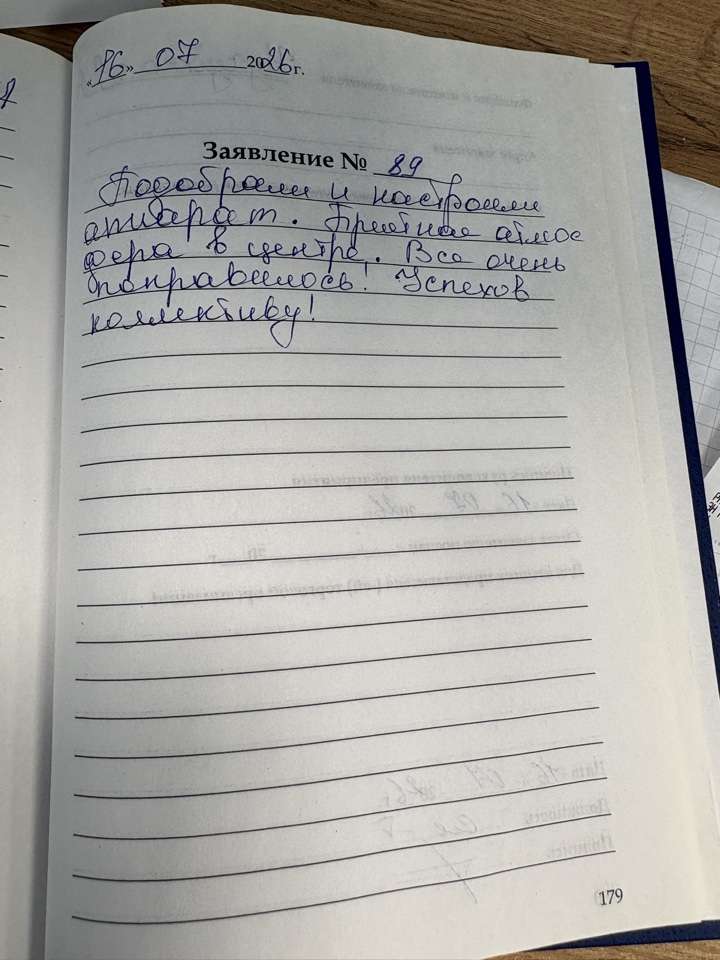 «16» 07 2026г.
Заявление № 89
Подобрали и настроили
аппарат. Приятная атмос
фера в центре. Все очень
понравилось! Успехов
коллективу!
179